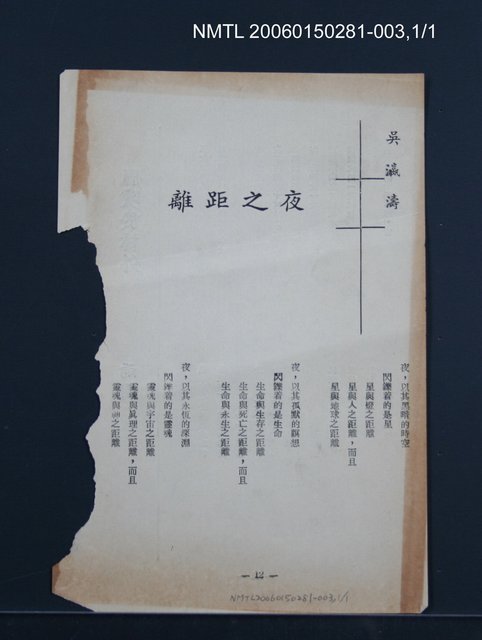 NMTL 20060150281-003,1/1
吳瀛濤
夜之距離
夜，以其黑暗的時空
閃鑠着的是星
星與燈之距離
星與人之距離，而且
星與地球之距離
夜，以其孤獸的瞑想
閃鑠着的是生命
生命與生存之距離
生命與死亡之距離，而且
生命與永生之距離
夜，以其永恆的深淵
閃鑠着的是靈魂
靈魂與宇宙之距離
靈魂與眞理之距離，而且
靈魂與神之距離
— 12 —
NMTL20060150281-003,1/1